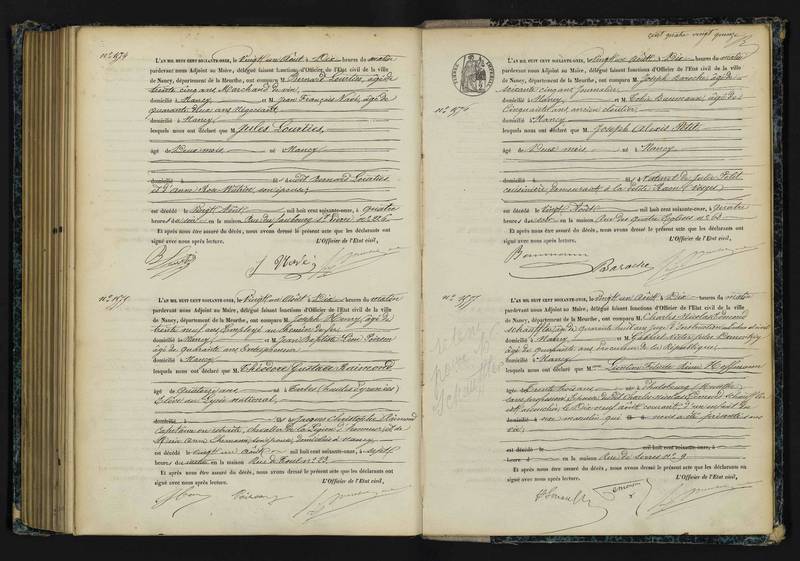 N° 1574
L'AN MIL HUIT CENT SOIXANTE-ONZE, le Vingt un Août à Dix heures du matin
pardevant nous Adjoint au Maire, délégué faisant fonctions d'Officier de l'Etat civil de la ville
de Nancy, département de la Meurthe, ont comparu M. Bernard Lourties, âgé de
trente cinq ans Marchand de vin,
domicilié à Nancy et M. Jean François Noré, âgé de
quarante deux ans Négociant
domicilié à Nancy
lesquels nous ont déclaré que M. Jules Lourties,
âgé de Deux mois né à Nancy
domicilié à fils de dit Bernard Lourties
et d'Anne son épouse;
est décédé le Vingt Août mil huit cent soixante-onze, à quatre
heures du soir en la maison Rue du faubourg St Pierre n° 226
Et après nous être assuré du décès, nous avons dressé le présent acte que les déclarants ont
signé avec nous après lecture. L'Officier de l'Etat civil,
N° 1575
L'AN MIL HUIT CENT SOIXANTE-ONZE, le Vingt un Août à Dix heures du matin
pardevant nous Adjoint au Maire, délégué faisant fonctions d'Officier de l'Etat civil de la ville
de Nancy, département de la Meurthe, ont comparu M. Joseph Henry, âgé de
trente neuf ans Employé au Chemin de fer
domicilié à Nancy et M. Jean Baptiste Poirson
âgé de quarante ans Entrepreneur
domicilié à Nancy
lesquels nous ont déclaré que M. Théodore Gustave Raimond
âgé de quatorze ans né à Tarbes (Hautes Pyrénées)
Elève au Lycée national,
domicilié à fils de Jacques Christophe Raimond
Capitaine en retraite, chevalier de la Légion d'honneur, et de
Marie Anne son épouse, domiciliés à Nancy
est décédé le vingt un Août mil huit cent soixante-onze, à sept
heures du matin en la maison Rue de Toul n° 23
Et après nous être assuré du décès, nous avons dressé le présent acte que les déclarants ont
signé avec nous après lecture. L'Officier de l'Etat civil,
cent quatre vingt quinze
N° 1576
L'AN MIL HUIT CENT SOIXANTE-ONZE, le Vingt un Août à Dix heures du matin
pardevant nous Adjoint au Maire, délégué faisant fonctions d'Officier de l'Etat civil de la ville
de Nancy, département de la Meurthe, ont comparu M. Joseph Baroche, âgé de
soixante cinq ans Journalier
domicilié à Nancy et M. Baumann, âgé de
cinquante ans, ancien cloutier
domicilié à Nancy
lesquels nous ont déclaré que M. Joseph Alexis Petit
âgé de Deux mois né à Nancy
domicilié à fils naturel de Julie Petit
cuisinière, demeurant à la petite Raon (Vosges)
est décédé le Vingt Août mil huit cent soixante-onze, à quatre
heures du soir en la maison Rue des quatre Eglises n° 63
Et après nous être assuré du décès, nous avons dressé le présent acte que les déclarants ont
signé avec nous après lecture. L'Officier de l'Etat civil,
Baumann
Baroche
N° 1577
L'AN MIL HUIT CENT SOIXANTE-ONZE, le Vingt un Août à Dix heures du matin
pardevant nous Adjoint au Maire, délégué faisant fonctions d'Officier de l'Etat civil de la ville
de Nancy, département de la Meurthe, ont comparu M. Charles Nicolas Edmond
Schauffler, âgé de quarante huit ans
domicilié à Nancy et M. Gabriel
âgé de quarante ans Procureur de la République,
domicilié à Nancy
lesquels nous ont déclaré que Hoffmann
âgée de Trente trois ans née à Phalsbourg (Meurthe)
sans profession Epouse de dit Charles Nicolas Edmond Schauffler
est accouchée le Dix neuf août courant d'un enfant du
sexe masculin qui nous a été présenté sans
vie.
est décédé le mil huit cent soixante-onze, à
heures du en la maison Rue de Serres n° 9
Et après nous être assuré du décès, nous avons dressé le présent acte que les déclarants ont
signé avec nous après lecture. L'Officier de l'Etat civil,